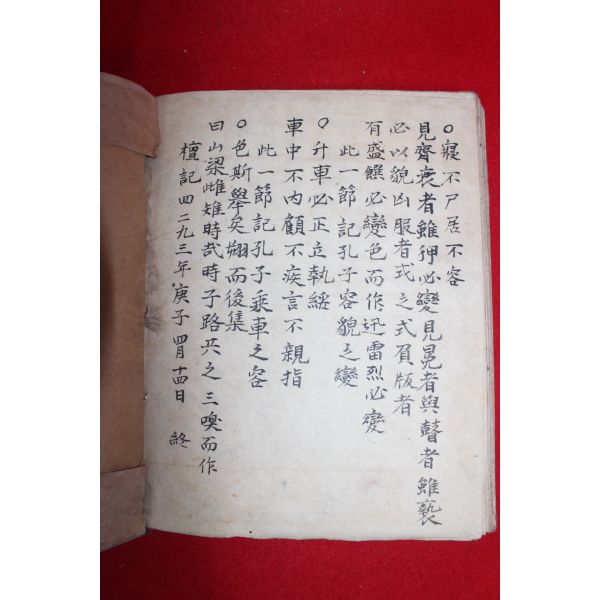 ○寢不尸居不容
見齊衰者雖狎必變見冕者與瞽者雖褻
必以貌凶服者式之式負版者
有盛饌必變色而作迅雷烈必變
此一節記孔子容貌之變
○升車必正立執綏
車中不內顧不疾言不親指
此一節記孔子乘車之容
○色斯舉矣翔而後集
曰山梁雌雉時哉時子路共之三嗅而作
檀記四二九三年庚子四月十四日 終